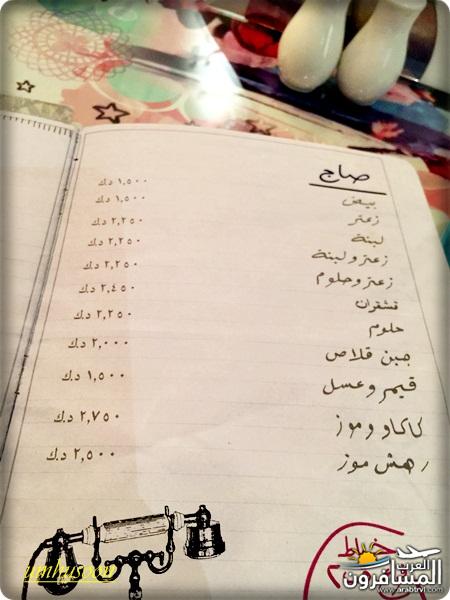 صاج
بيض ١,٥٠٠ د.ك
زعتر ١,٥٠٠ د.ك
لبنة ٢,٢٥٠ د.ك
زعتر ولبنة ٢,٢٥٠ د.ك
زعتر وحلوم ٢,٢٥٠ د.ك
قشقوان ٢,٤٥٠ د.ك
حلوم ٢,٢٥٠ د.ك
جبن قلاص ٢,٠٠٠ د.ك
قيمر وعسل ١,٥٠٠ د.ك
كاكاو وموز ٢,٧٥٠ د.ك
رهش موز ٢,٥٠٠ د.ك
العرب
المسافرون
www.arabtrvl.com